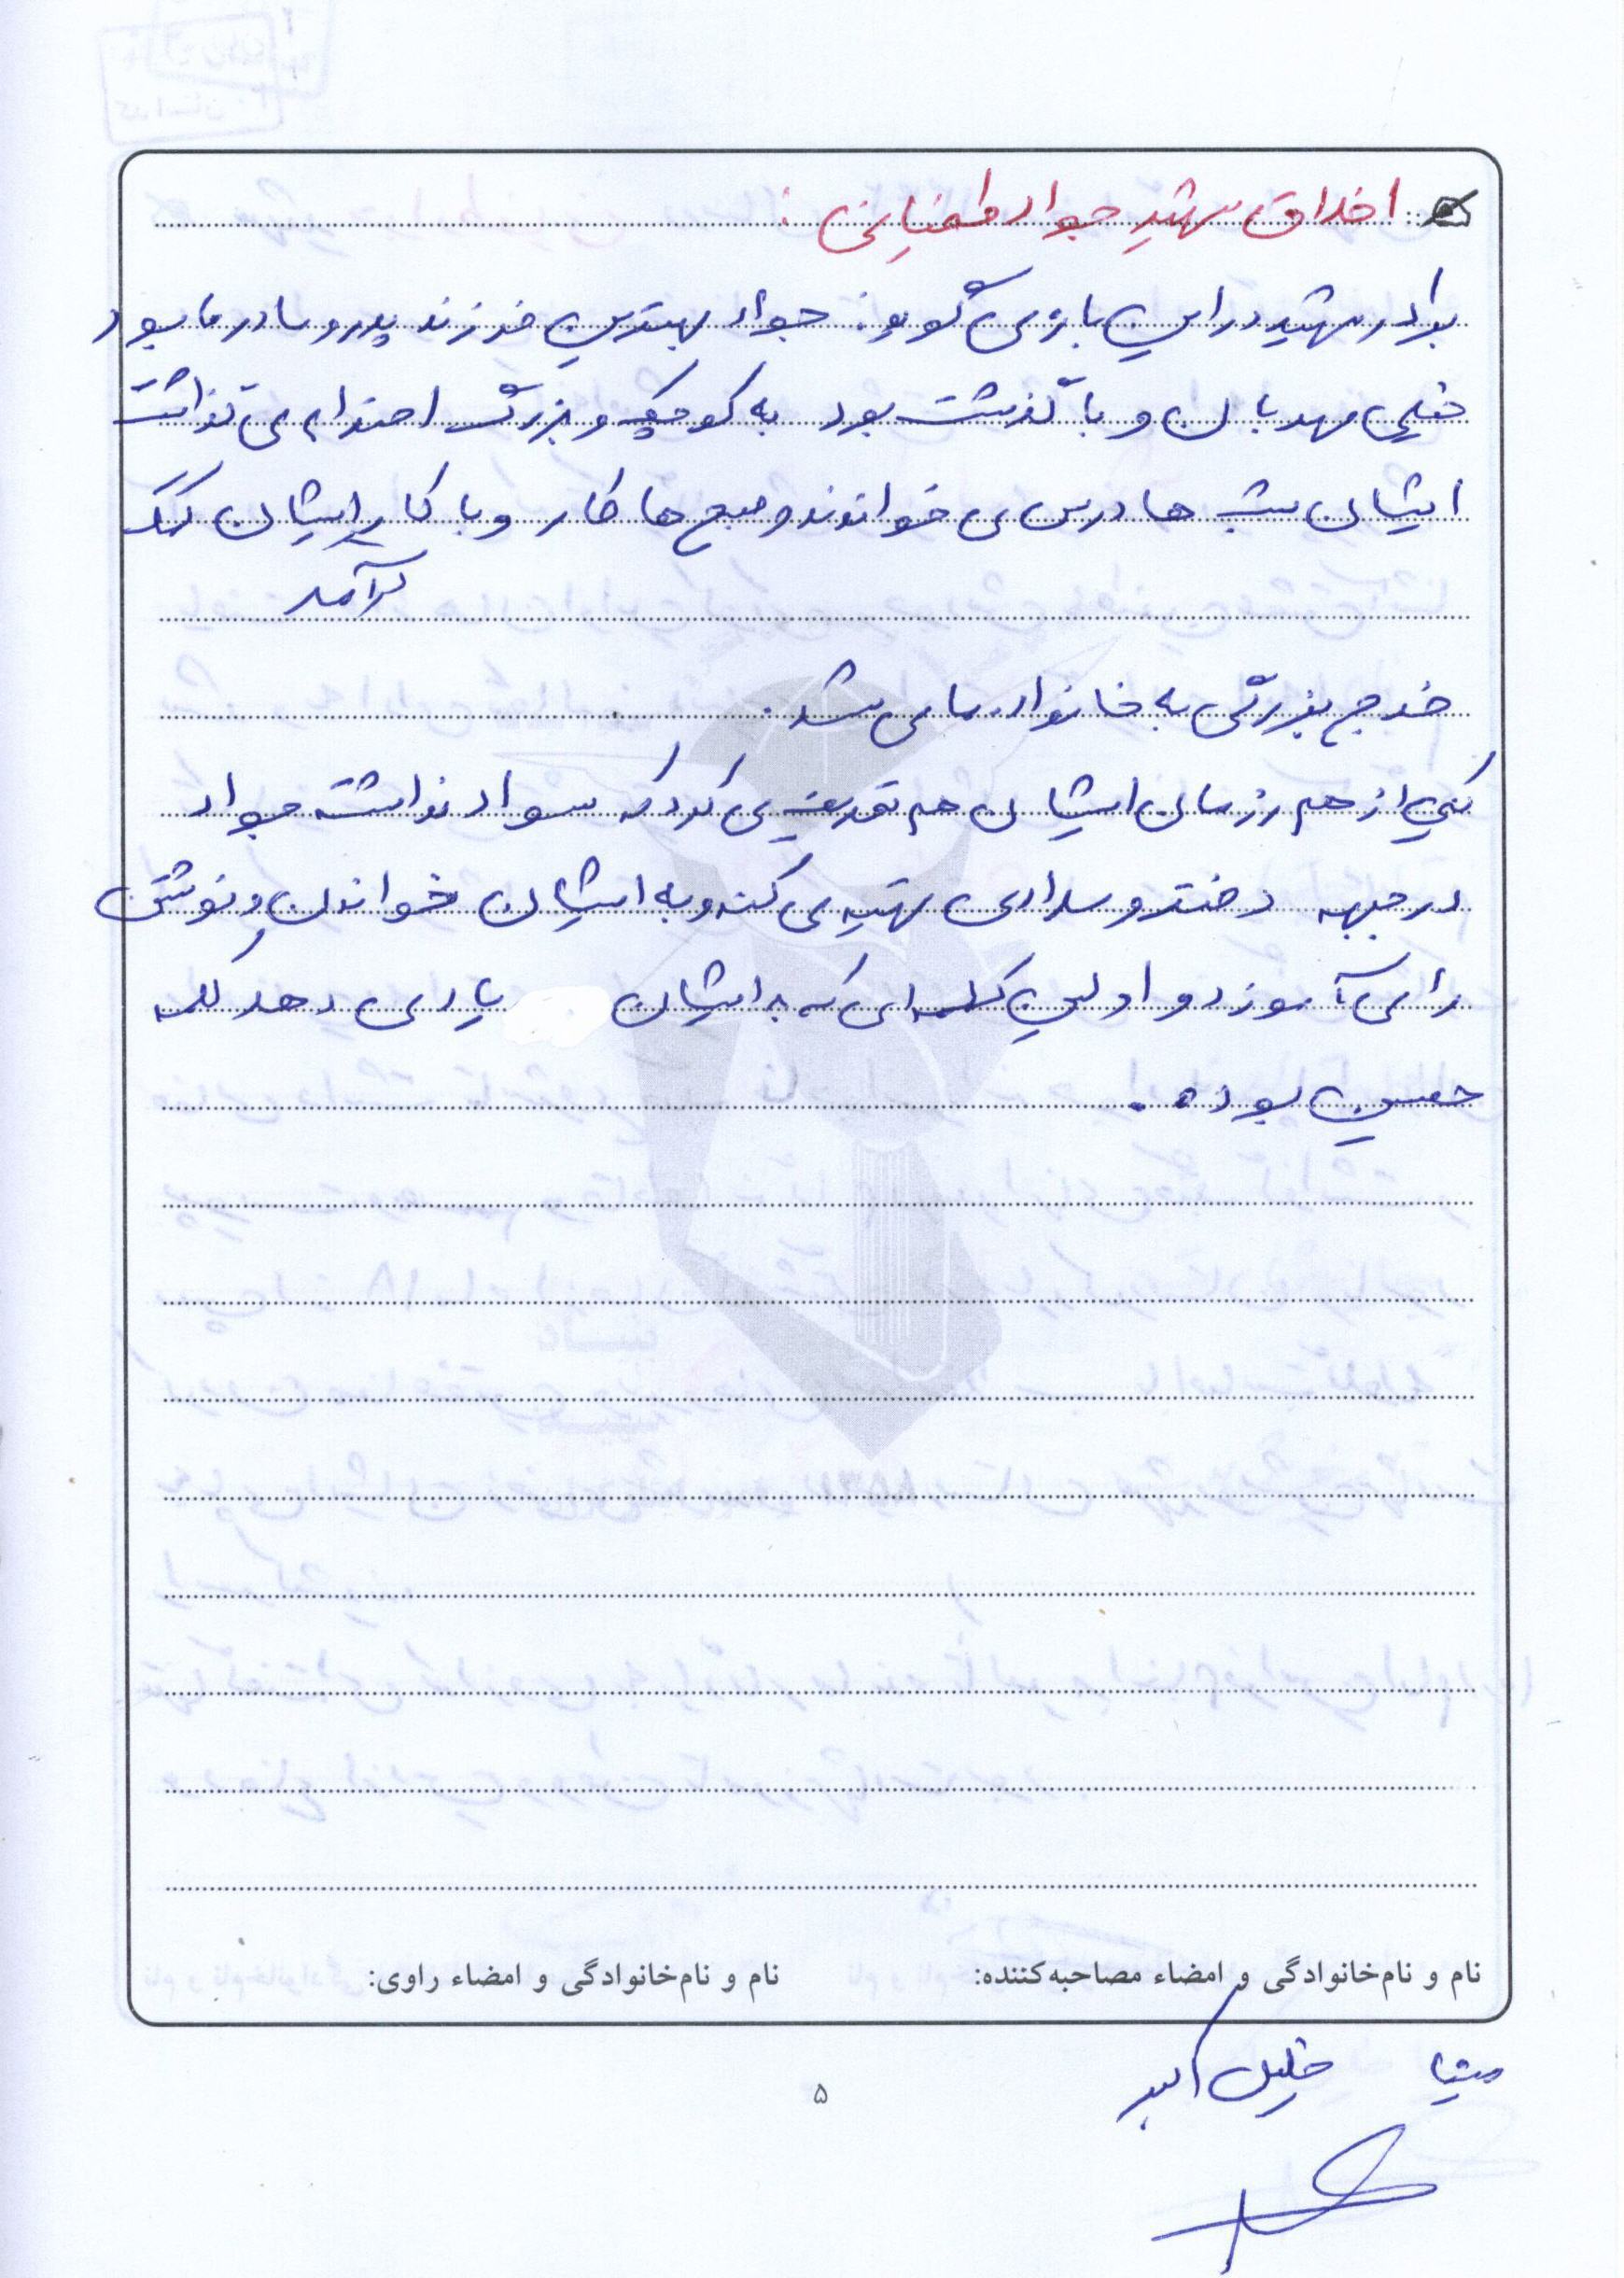 اخلاق شهید جواد طمنیانی :
برادر شهید در این باره می گوید: جواد بهترین فرزند پدر و مادر ما بود
خیلی مهربان و با گذشت بود به کوچک و بزرگ احترام می گذاشت
ایشان شب ها درس می خواندند و صبح ها کار و با کار ایشان کمک
درآمد
خرج بزرگی به خانواده ما می شد.
یکی از هم رزمان ایشان هم تعریف می کرد که سواد نداشته جواد
در جبهه دفتر و مدادی تهیه می کند و به ایشان خواندن و نوشتن
را می آموزد و اولین کلمه ای که به ایشان یاد می دهد کلمه
حسین بوده.
نام و نام‌خانوادگی و امضاء مصاحبه‌کننده:
نام و نام‌خانوادگی و امضاء راوی:
خلیل اکبر
۵